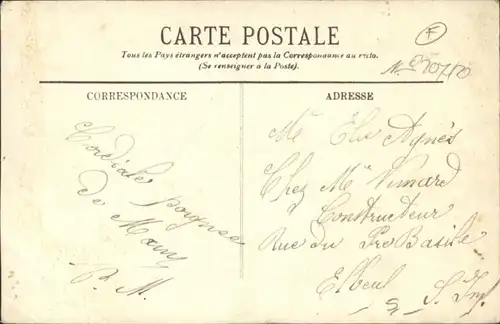 CARTE POSTALE
Tous les Pays étrangers n'acceptent pas la Correspondance au recto.
(Se renseigner à la Poste).
F
CORRESPONDANCE
Cordiale Poignée
de Main
P. M.
ADRESSE
Mr Elie Agnès
Chez Mr Vimard
Constructeur
Rue du Pré Basile
Elbeuf
S. Inf.